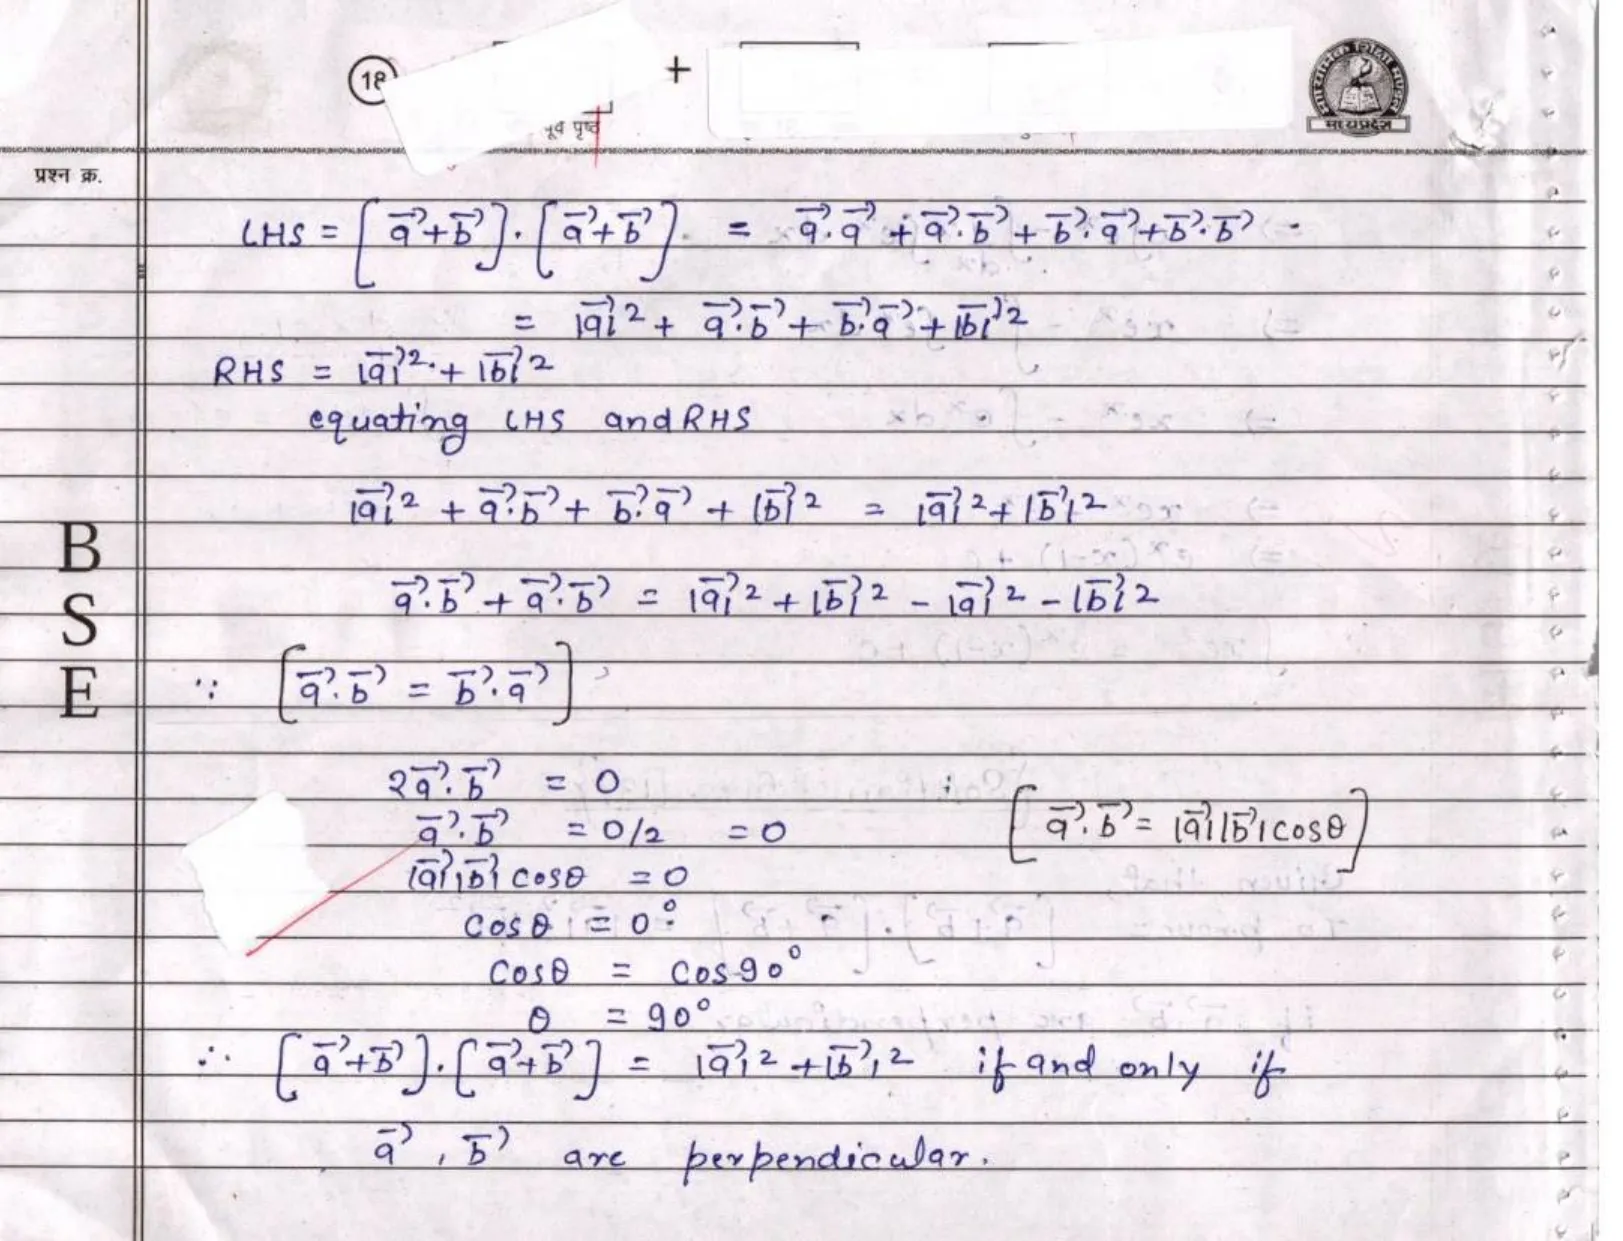 18 +
पूर्व पृष्ठ
मध्यप्रदेश
प्रश्न क्र.
LHS = [a⃗+b⃗].[a⃗+b⃗] = a⃗.a⃗ + a⃗.b⃗ + b⃗.a⃗ + b⃗.b⃗
= |a⃗|² + a⃗.b⃗ + b⃗.a⃗ + |b⃗|²
RHS = |a⃗|² + |b⃗|²
equating LHS and RHS
|a⃗|² + a⃗.b⃗ + b⃗.a⃗ + |b⃗|² = |a⃗|² + |b⃗|²
a⃗.b⃗ + a⃗.b⃗ = |a⃗|² + |b⃗|² - |a⃗|² - |b⃗|²
∵ [a⃗.b⃗ = b⃗.a⃗]
2a⃗.b⃗ = 0
a⃗.b⃗ = 0/2 = 0 [a⃗.b⃗ = |a⃗||b⃗|cosθ]
|a⃗||b⃗| cosθ = 0
cosθ = 0°
cosθ = cos90°
θ = 90°
∴ [a⃗+b⃗].[a⃗+b⃗] = |a⃗|² + |b⃗|² if and only if
a⃗, b⃗ are perpendicular.
B
S
E